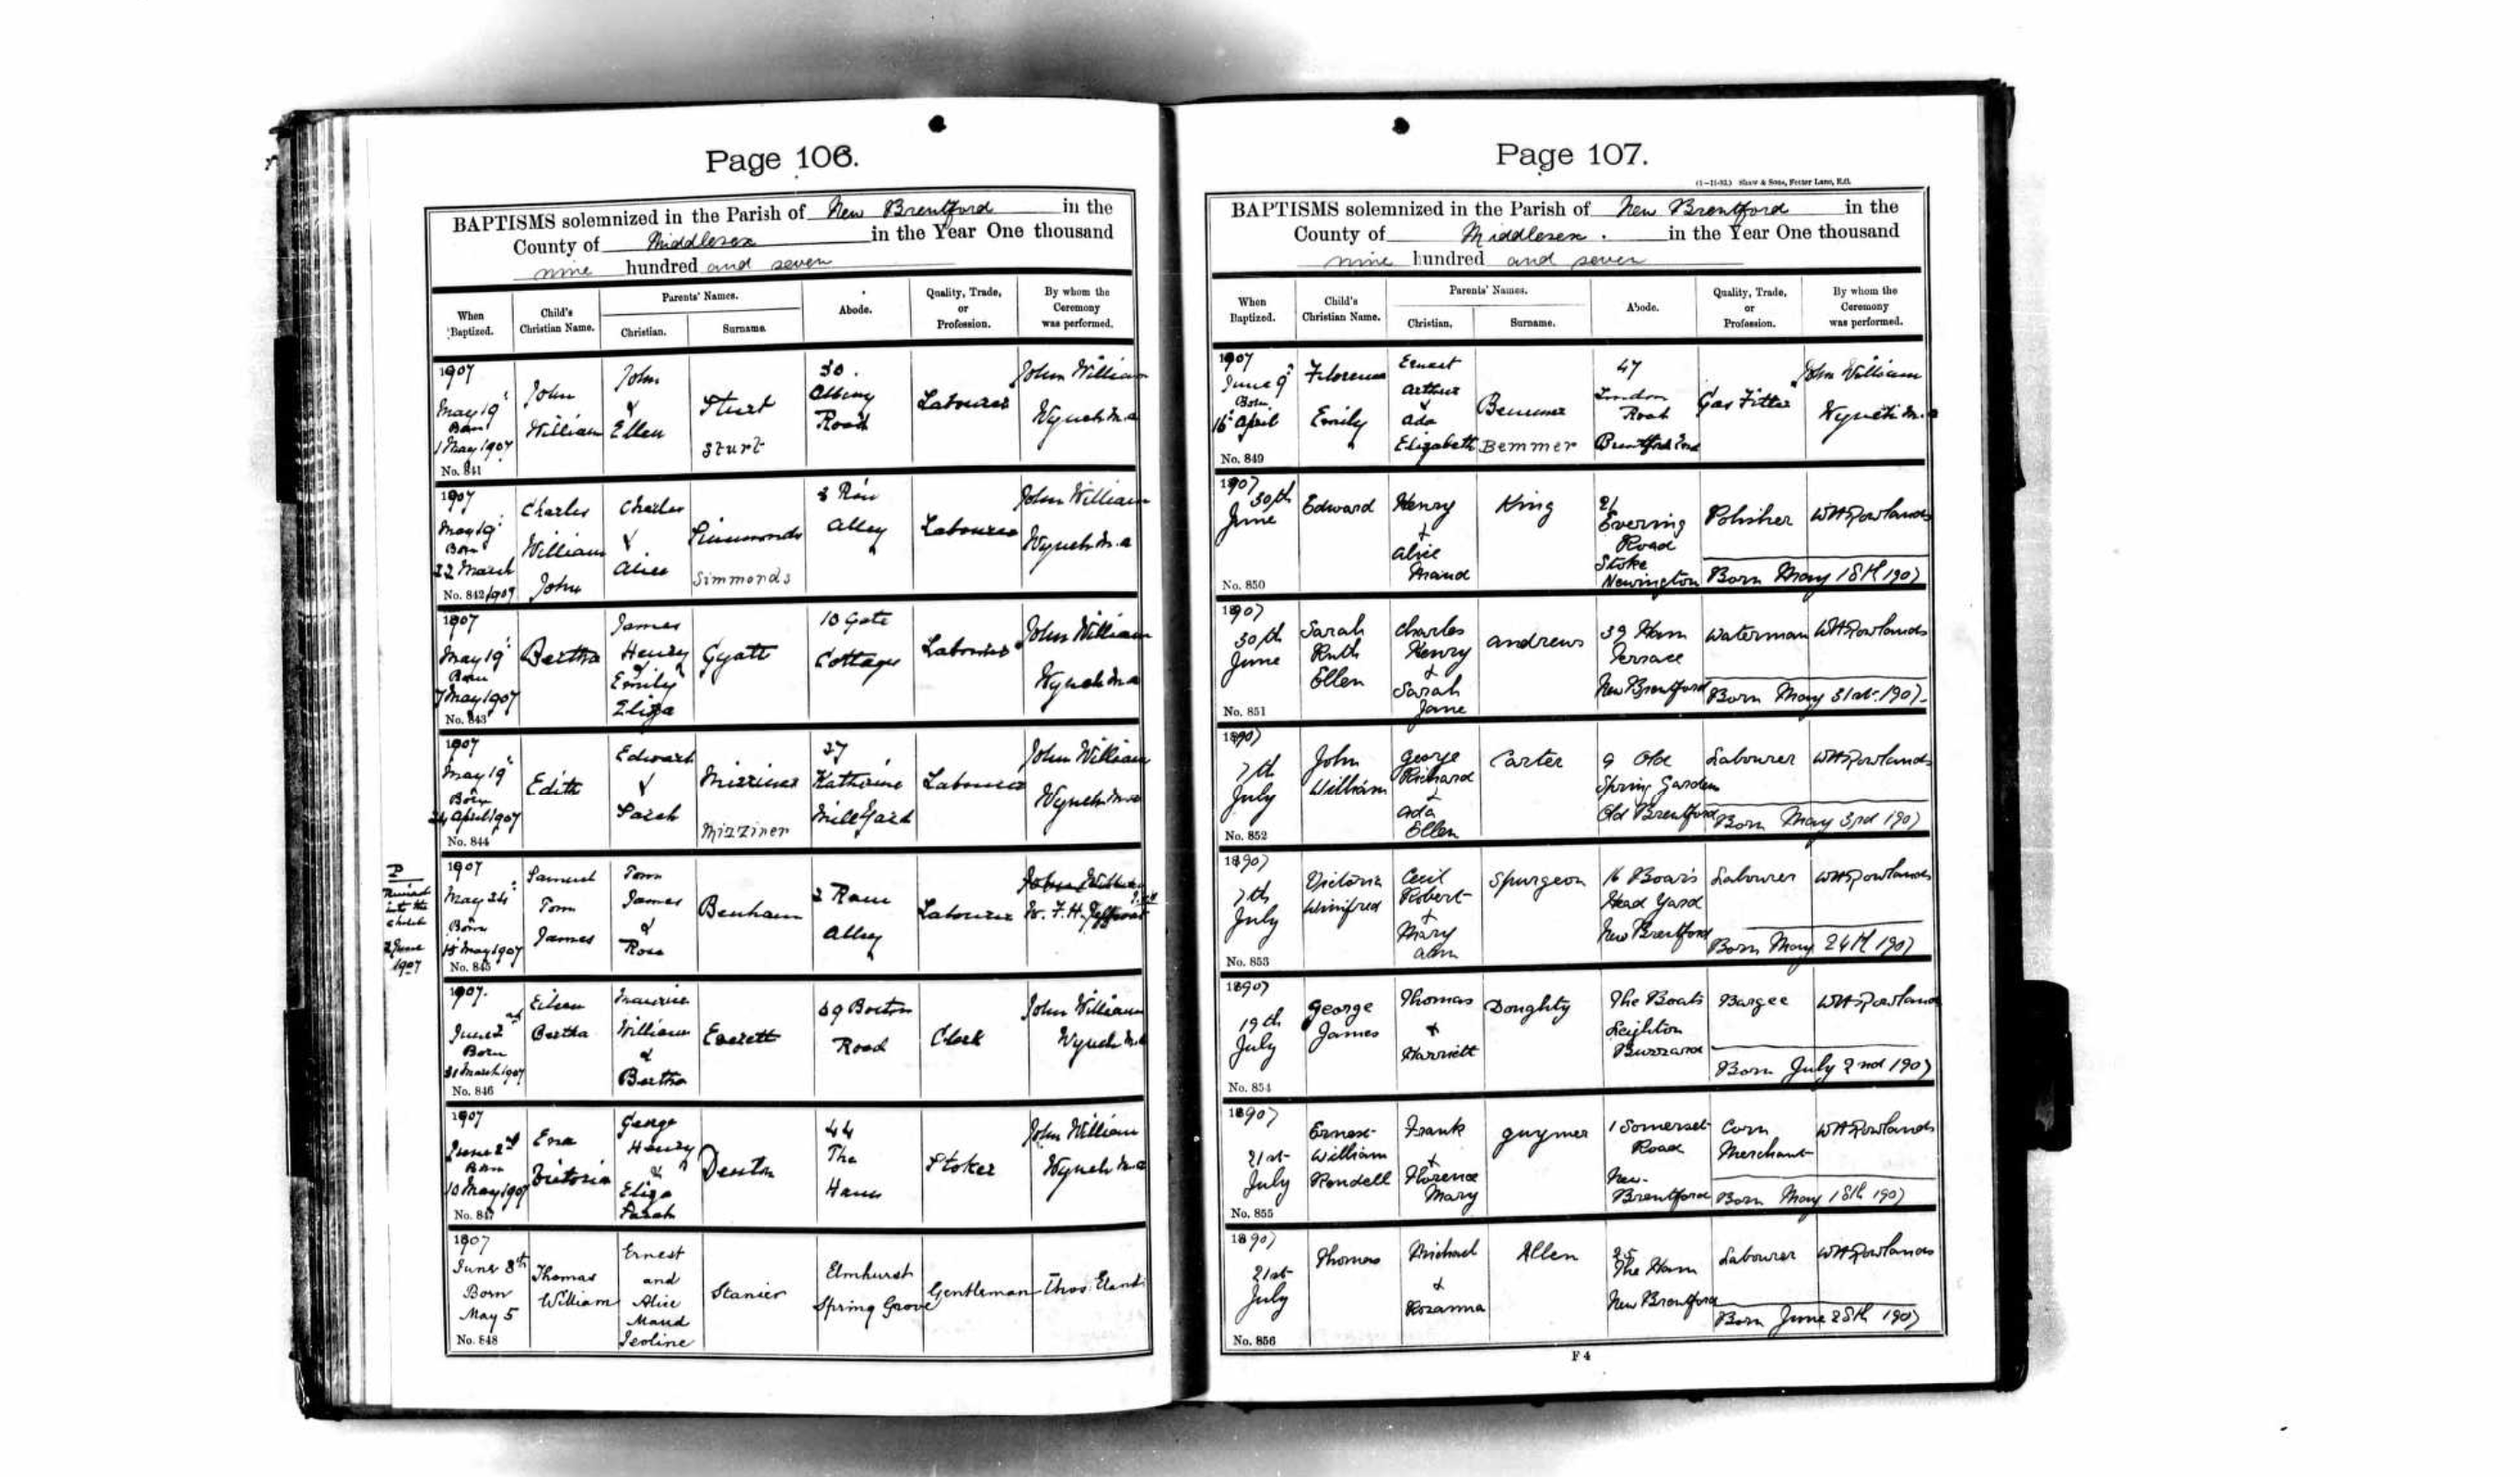 Page 106.
BAPTISMS solemnized in the Parish of New Brentford in the
County of Middlesex in the Year One thousand
nine hundred and seven
When Baptized.
Child's Christian Name.
Parents' Names.
Christian.
Surname.
Abode.
Quality, Trade, or Profession.
By whom the Ceremony was performed.
1907
May 19
Born
1 May 1907
No. 841
John
William
John
&
Ellen
Sturt
Sturt
30.
Albany
Road
Labourer
John William
Wynch M.A
1907
May 19
Born
22 March
1907
No. 842
Charles
William
John
Charles
&
Alice
Simmonds
Simmonds
3
Alley
Labourer
John William
Wynch M.A
1907
May 19
Born
7 May 1907
No. 843
Bertha
James
Henry
&
Emily
Eliza
Gyatt
10 Gate
Cottages
Labourer
John William
Wynch M.A
1907
May 19
Born
24 April 1907
No. 844
Edith
Edward
&
Sarah
Mizziner
Mizziner
27
Katherine
Mill Yard
Labourer
John William
Wynch M.A
P
into the
church
2 June
1907
1907
May 24
Born
15 May 1907
No. 845
Samuel
Tom
James
Tom
James
&
Rose
Benham
2 Ram
Alley
Labourer
John William
W. F. H.
1907.
June 2nd
Born
31 March 1907
No. 846
Eileen
Bertha
Maurice
William
&
Bertha
Everett
69 Boston
Road
Clerk
John William
Wynch M.A
1907
June 2nd
Born
10 May 1907
No. 847
Ena
Victoria
George
Henry
&
Eliza
Sarah
Denton
44
The
Ham
Stoker
John William
Wynch M.A
1907
June 8th
Born
May 5
No. 848
Thomas
William
Ernest
and
Alice
Maud
Stanier
Elmhurst
Spring Grove
Gentleman
Thos.
Page 107.
(1-11-92.) Shaw & Sons, Fetter Lane, E.C.
BAPTISMS solemnized in the Parish of New Brentford in the
County of Middlesex. in the Year One thousand
nine hundred and seven
When Baptized.
Child's Christian Name.
Parents' Names.
Christian.
Surname.
Abode.
Quality, Trade, or Profession.
By whom the Ceremony was performed.
1907
June 9
Born
16 April
No. 849
Florence
Emily
Ernest
Arthur
&
Ada
Elizabeth
Bemmer
Bemmer
47
London
Road
Brentford End
Gas Fitter
John William
Wynch M.A
1907
30th
June
No. 850
Edward
Henry
+
Alice
Maud
King
21
Evering
Road
Stoke
Newington
Polisher
W H Rowlands
Born May 18th 1907
1907
30th
June
No. 851
Sarah
Ruth
Ellen
Charles
Henry
+
Sarah
Jane
Andrews
39 Ham
Terrace
New Brentford
Waterman
W H Rowlands
Born May 31st. 1907.
1907
7th
July
No. 852
John
William
George
Richard
+
Ada
Ellen
Carter
9 Old
Spring Gardens
Old Brentford
Labourer
W H Rowlands
Born May 3rd 1907
1907
7th
July
No. 853
Victoria
Winifred
Cecil
Robert
+
Mary
Ann
Spurgeon
16 Boar's
Head Yard
New Brentford
Labourer
W H Rowlands
Born May 24th 1907
1907
19th
July
No. 854
George
James
Thomas
+
Harriett
Doughty
The Boats
Leighton
Buzzard
Bargee
W H Rowlands
Born July 2nd 1907
1907
21st
July
No. 855
Ernest
William
Rendell
Frank
+
Florence
Mary
Guymer
1 Somerset
Road
New
Brentford
Corn
Merchant
W H Rowlands
Born May 18th 1907
1907
21st
July
No. 856
Thomas
Michael
+
Rosanna
Allen
25
The Ham
New Brentford
Labourer
W H Rowlands
Born June 28th 1907
F 4